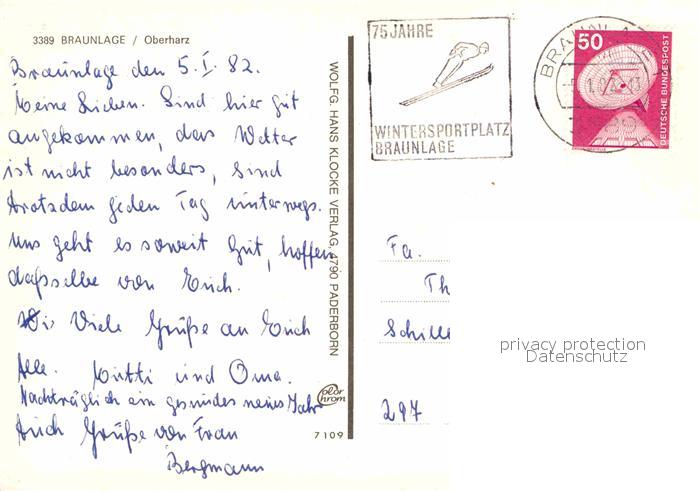 3389 BRAUNLAGE / Oberharz
Braunlage den 5.I.82.
Meine Lieben. Sind hier gut
angekommen, das Wetter
ist nicht besonders, sind
trotzdem jeden Tag unterwegs.
Uns geht es soweit gut, hoffen
dasselbe von Euch.
Viele Grüße an Euch
Alle. Mutti und Oma.
Nachträglich ein gesundes neues Jahr
Auch Grüße von Frau
Bergmann
WOLFG. HANS KLOCKE VERLAG, 4790 PADERBORN
color
chrom
7109
75 JAHRE
WINTERSPORTPLATZ
BRAUNLAGE
50
DEUTSCHE BUNDESPOST
Fa.
Th
Schille
297
privacy protection
Datenschutz